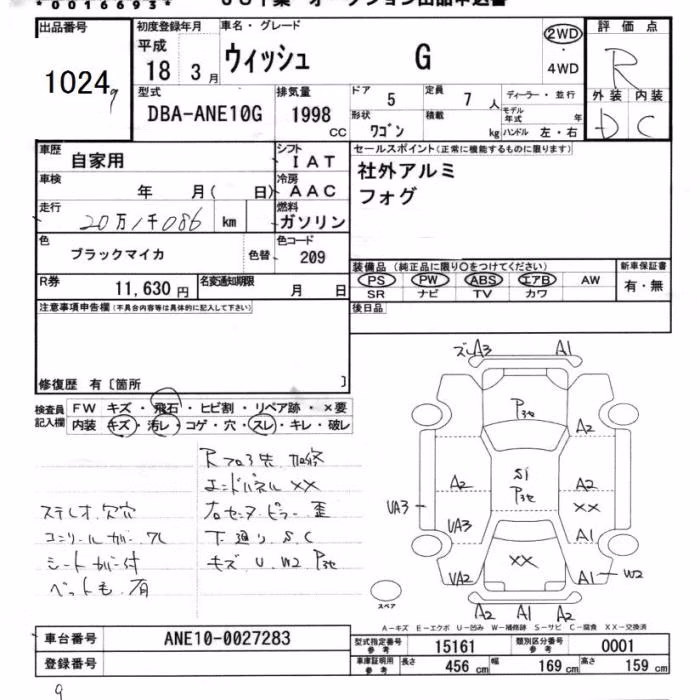 *0016693*
出品番号 初度登録年月 車名・グレード 評価点
1024 平成 18 3月 ウィッシュ G 2WD ・ 4WD R
型式 排気量 ドア 5 定員 7人 ディーラー・並行 外装 内装
DBA-ANE10G 1998 CC 形状 ワゴン 積載 kg モデル年式 年 ハンドル 左・右 D C
車歴 自家用 シフト IAT セールスポイント(正常に機能するものに限ります)
車検 年 月( 日) 冷房 AAC 社外アルミ
走行 20万1千086 km 燃料 ガソリン フォグ
色 ブラックマイカ 色替 色コード 209
R券 11,630円 名変通知期限 月 日
装備品(純正品に限り○をつけてください) 新車保証書
PS PW ABS エアB AW 有・無
SR ナビ TV カワ
注意事項申告欄(不具合内容等は具体的に記入して下さい) 後日品
修復歴 有〔箇所 〕
検査員記入欄 FW キズ・飛石・ヒビ割・リペア跡・×要
内装 キズ・汚レ・コゲ・穴・スレ・キレ・破レ
エンドパネル XX
ステレオ欠穴 右センターピラー 歪
下廻り S.C
シートカバー付 キズ U W2
A3 A1
A2
S1
A2 A2
XX
UA3
UA3 A1
XX
UA2 A1 W2
スペア
A2 A1 A2
A-キズ E-エクボ U-凹み W-補修跡 S-サビ C-腐食 XX-交換済
車台番号 ANE10-0027283 型式指定番号 参考 15161 類別区分番号 参考 0001
登録番号 車庫証明用 参考 長さ 456 cm 幅 169 cm 高さ 159 cm